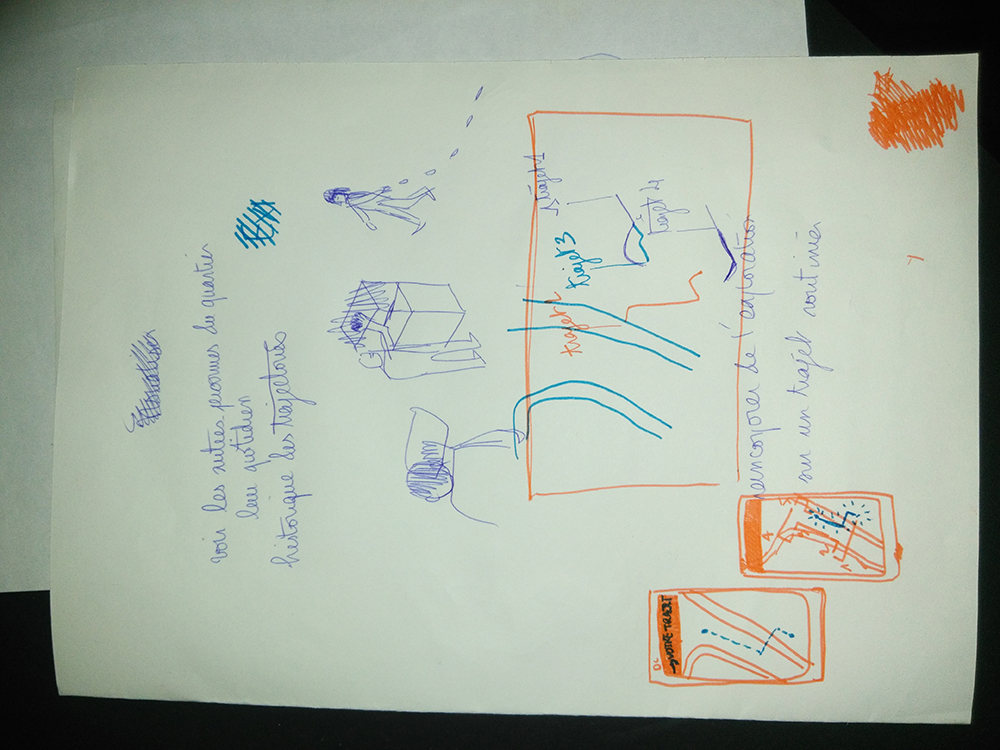 voir les autres personnes du quartier
leur quotidien
historique des trajectoires
trajet 1
trajet 3
trajet 4
trajet
de l'exploration
sur un trajet routinier
VOTRE TRAJET